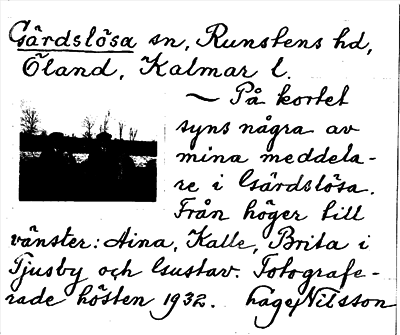 Gärdslösa sn, Runstens hd,
Öland, Kalmar l.
— På kortet
syns några av
mina meddela-
re i Gärdslösa.
Från höger till
vänster: Aina, Kalle, Brita i
Tjusby och Gustav. Fotografe-
rade hösten 1932. Hage Nilsson